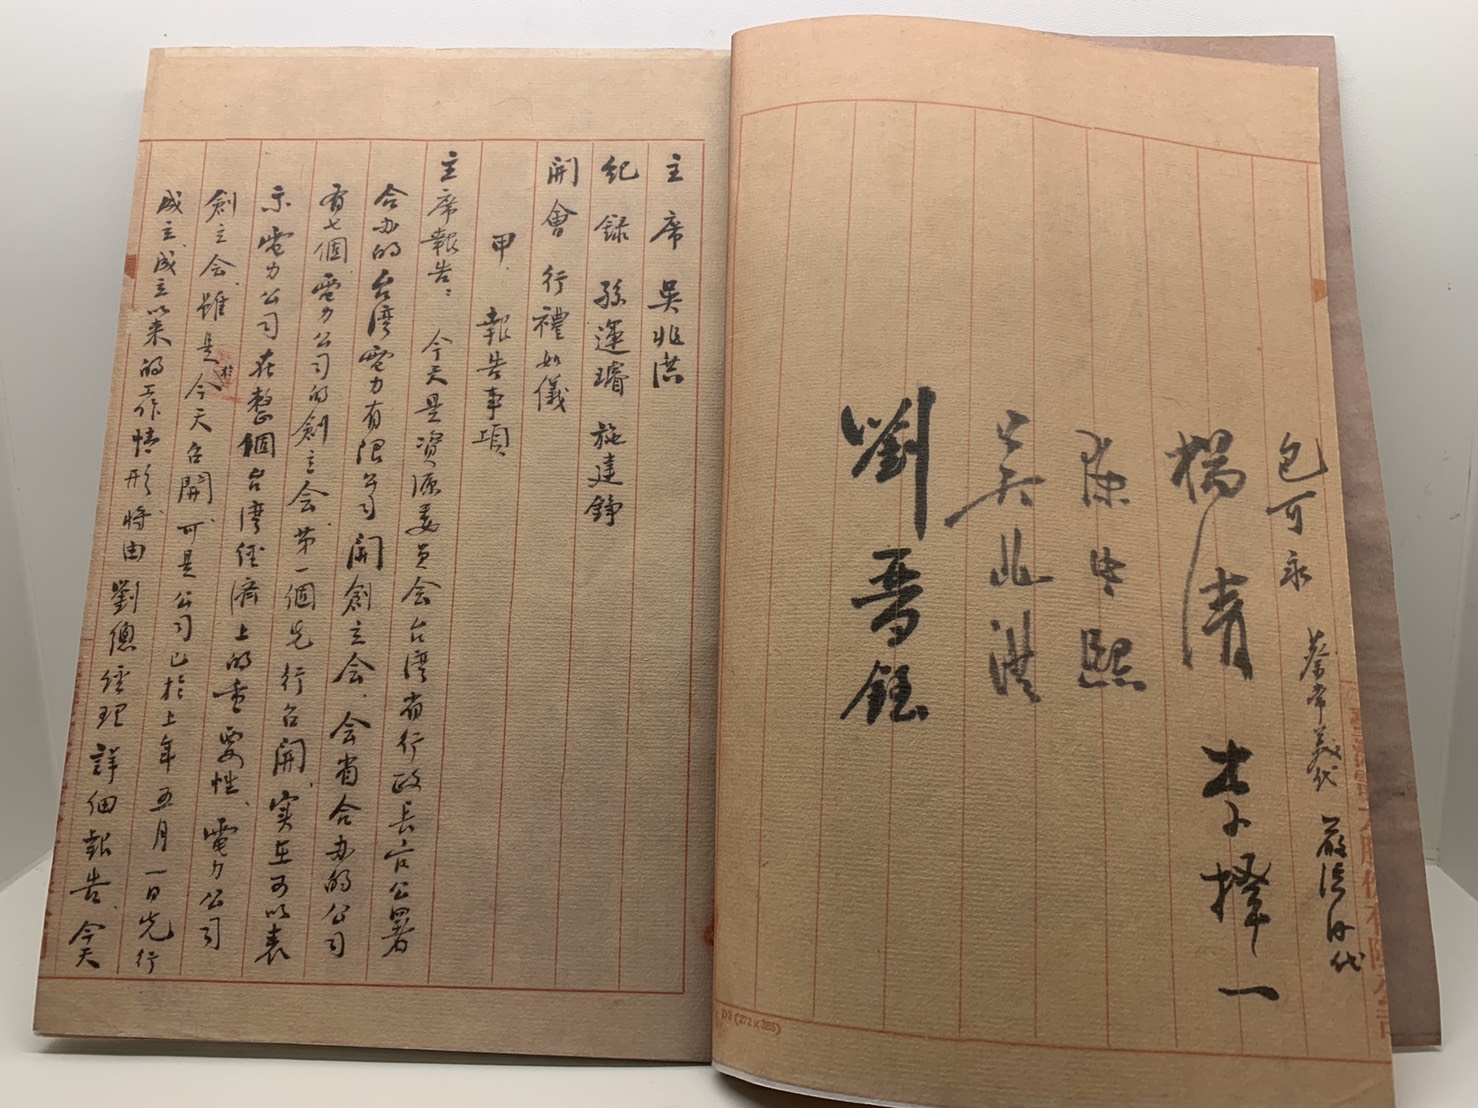 包可永
蔡常義代
嚴演存代
楊清
李擇一
陳中熙
吳兆洪
劉晉鈺
D3 (272×385)
主席 吳兆洪
紀錄 孫運璿 施建錚
開會行禮如儀
甲、報告事項
主席報告：今天是資源委員会台湾省行政長官公署
合办的台湾電力有限公司開創立会、会省合办的公司
有七個、電力公司的創立会、第一個先行召開、实在可以表
示電力公司在整個台湾经濟上的重要性、電力公司
創立会、雖是今天召開、可是公司已於上年五月一日先行
成立、成立以来的工作情形、将由劉總经理詳细報告、今天